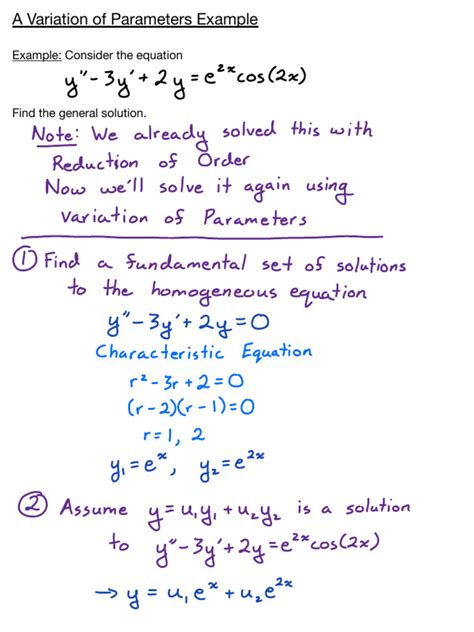 A Variation of Parameters Example
Example: Consider the equation
y″ - 3y′ + 2y = e²ˣcos(2x)
Find the general solution.
Note: We already solved this with
Reduction of Order
Now we'll solve it again using
Variation of Parameters
① Find a fundamental set of solutions
to the homogeneous equation
y″ - 3y′ + 2y = 0
Characteristic Equation
r² - 3r + 2 = 0
(r - 2)(r - 1) = 0
r = 1, 2
y₁ = eˣ, y₂ = e²ˣ
② Assume y = u₁y₁ + u₂y₂ is a solution
to y″ - 3y′ + 2y = e²ˣcos(2x)
→ y = u₁eˣ + u₂e²ˣ